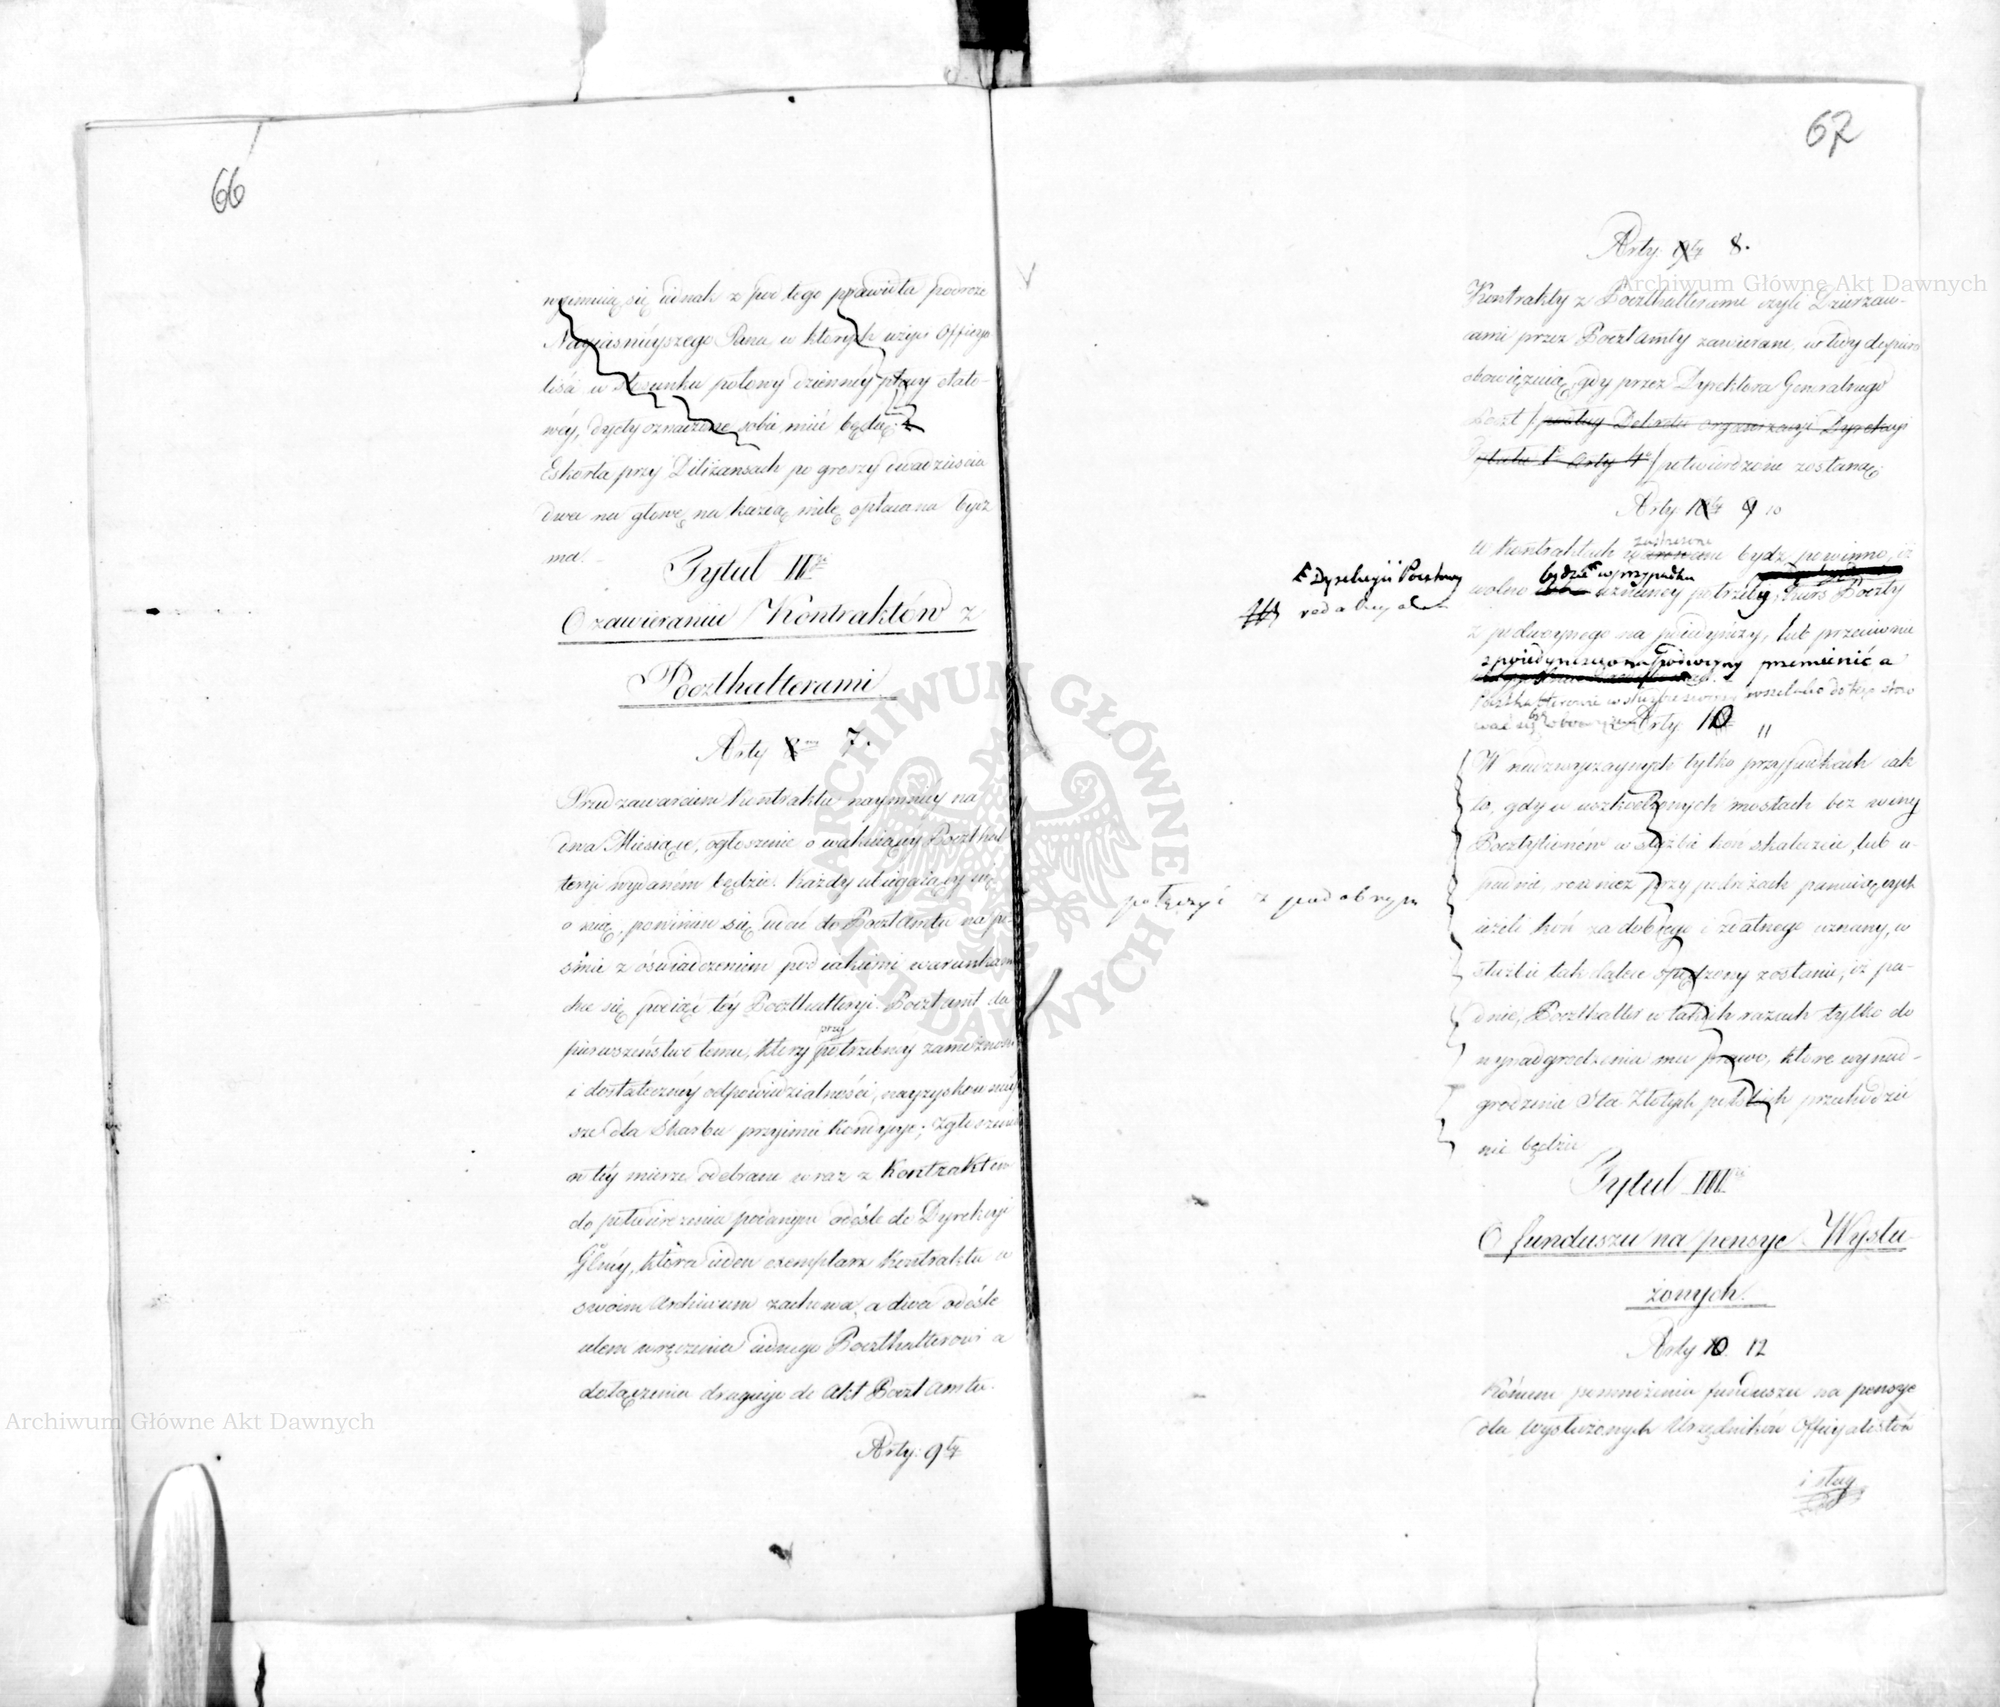 66
wyimuią się iednak z pod tego prawidła podroże
Nayiaśnieyszego Pana w ktorych użyci Officya
liści w stosunku połowy dzienney płacy etato-
wéy, dyety oznaczone sobie mieć będą.
Eskorta przy Diliżansach po groszy dwadzieścia
dwa na głowę na każdą milę opłacana bydz
ma.
Tytuł II
O zawieraniu Kontraktów z
Poczthalterami
Arty 8 7.
Przed zawarciem Kontraktu naymniey na
dwa Miesiące, ogłoszenie o wakuiącéy Poczthal
teryi wydaném będzie. Każdy ubiegaiący się
o nię, powinien się udać do Pocztamtu na pi-
śmie z oświadczeniem pod iakiemi warunkami
chce się podiąć téy Poczthalteryi. Pocztamt da
przy
pierwszeństwo temu, który potrzebney zamożności
i dostateczney odpowiedzialności, nayzyskowniéy
sze dla Skarbu przyimie kondycye; Zgłoszenia
w téy mierze odebrane wraz z Kontraktem
do potwierdzenia podanym odeśle do Dyrekcyi
Głney, która ieden exemplarz Kontraktu w
swoim Archiwum zachowa, a dwa odeśle
celem wręczenia iednego Poczthalterowi a
dołączenia drugiego do Akt Pocztamtu.
Arty: 9ty
67
Arty. 9ty 8.
Kontrakty z Poczthalterami czyli Dzierżaw-
cami przez Pocztamty zawierane, wtedy dopiero
obowięzuią, gdy przez Dyrektora Generalnego
Poczt /podług Dekretu organizacyi Dyrekcyi
Tytułu 1o Arty 4o/ potwierdzone zostaną.
Arty. 10ty 9 10
zastrzeżone
W kontraktach warowane bydz powinno, iż
Dyrekcyi Pocztowey
będzie w przypadku
wolno uznaney potrzeby, kurs Poczty
z podwoynego na poiedyńczy, lub przeciwnie
z poiedynczego na podwoyny przemienić a
Arty. 10 11
W nadzwyczaynych tylko przypadkach iak
to, gdy w uszkodzonych mostach bez winy
Pocztylionów w służbie koń skaleczeie, lub u-
padnie, rownież przy podróżach panuiących
ieżeli koń za dobrego i zdatnego uznany, w
służbie tak dalece spędzony zostanie, iż pa-
dnie, Poczthalter w takich razach tylko do
wynadgrodzenia ma prawo, które wynad-
grodzenie Sta Złotych polskich przechodzić
nie będzie
połączyć z podobnym
Tytuł III
O funduszu na pensye Wysłu-
żonych.
Arty 10. 12
Końcem pomnożenia funduszu na pensye
dla wysłużonych Urzędników Officyalistów
i sług
Archiwum Główne Akt Dawnych
Archiwum Główne Akt Dawnych
ARCHIWUM GŁÓWNE AKT DAWNYCH